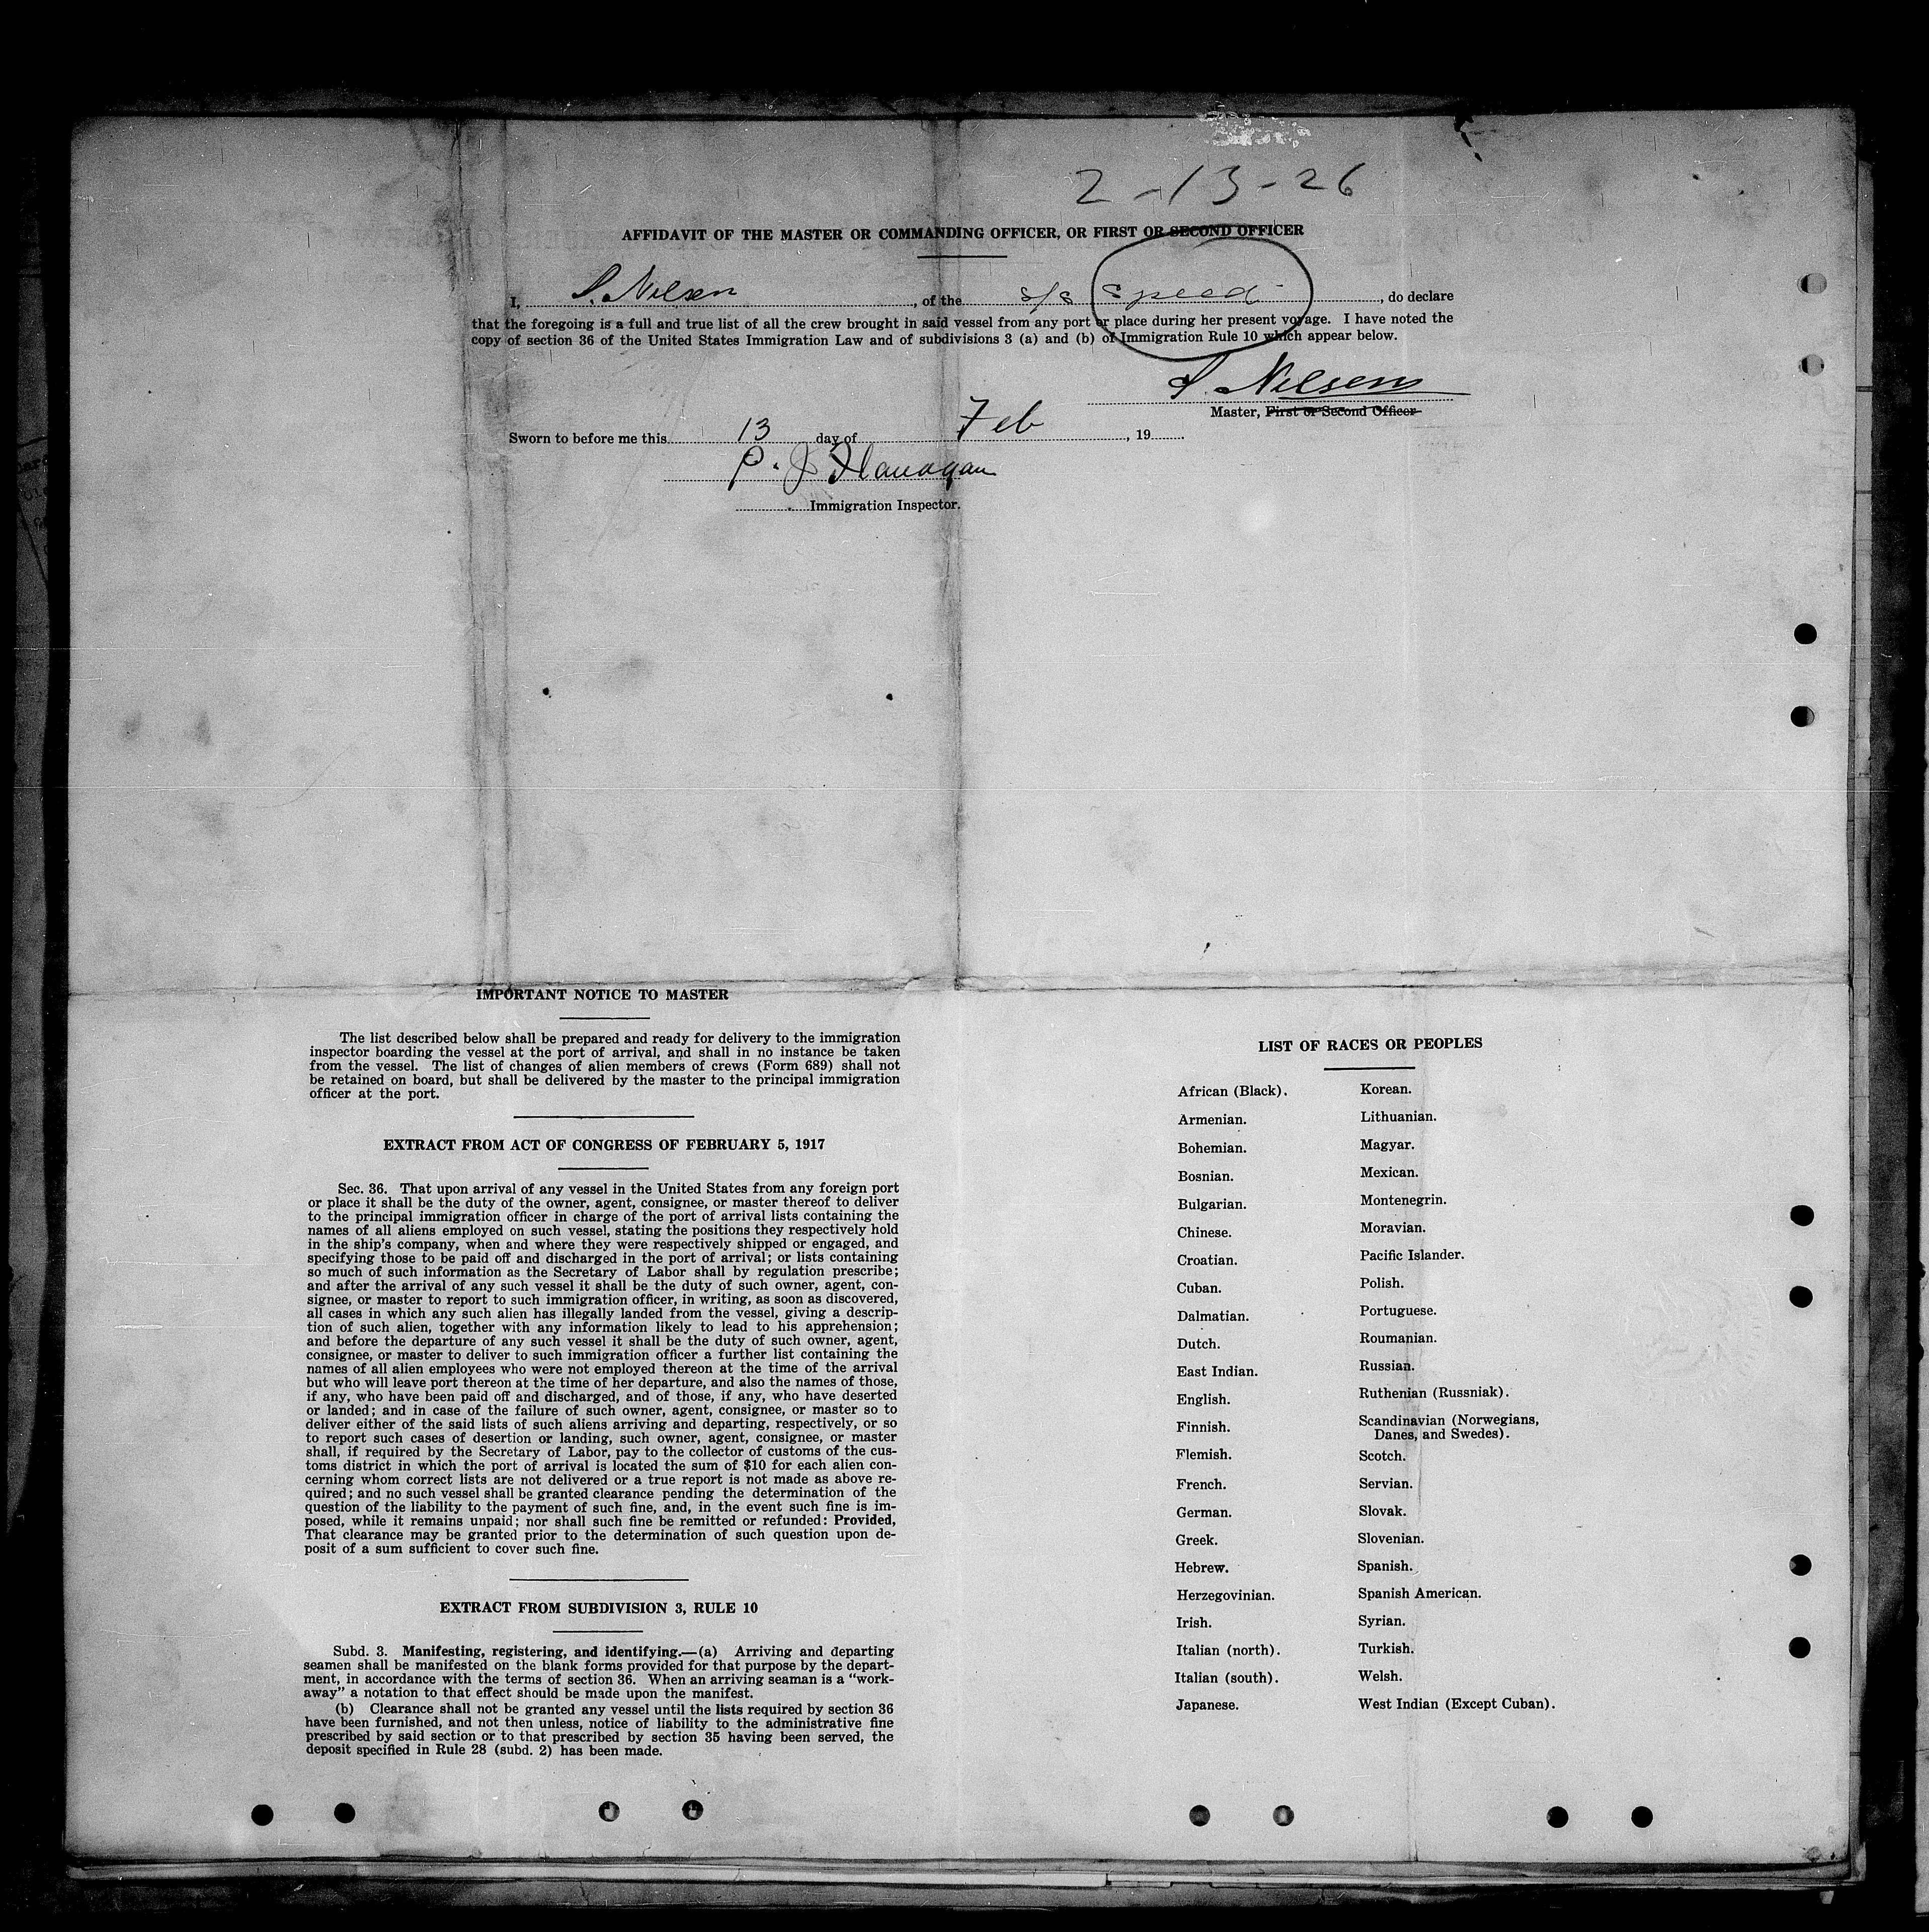 2-13-26
AFFIDAVIT OF THE MASTER OR COMMANDING OFFICER, OR FIRST OR SECOND OFFICER
I, S. Nilsen, of the s/s Speed, do declare
that the foregoing is a full and true list of all the crew brought in said vessel from any port or place during her present voyage. I have noted the
copy of section 36 of the United States Immigration Law and of subdivisions 3 (a) and (b) of Immigration Rule 10 which appear below.
S. Nilsen
Master, First or Second Officer
Sworn to before me this 13 day of Feb, 19
P. J. Flanagan
Immigration Inspector.
IMPORTANT NOTICE TO MASTER
The list described below shall be prepared and ready for delivery to the immigration
inspector boarding the vessel at the port of arrival, and shall in no instance be taken
from the vessel. The list of changes of alien members of crews (Form 689) shall not
be retained on board, but shall be delivered by the master to the principal immigration
officer at the port.
EXTRACT FROM ACT OF CONGRESS OF FEBRUARY 5, 1917
Sec. 36. That upon arrival of any vessel in the United States from any foreign port
or place it shall be the duty of the owner, agent, consignee, or master thereof to deliver
to the principal immigration officer in charge of the port of arrival lists containing the
names of all aliens employed on such vessel, stating the positions they respectively hold
in the ship's company, when and where they were respectively shipped or engaged, and
specifying those to be paid off and discharged in the port of arrival; or lists containing
so much of such information as the Secretary of Labor shall by regulation prescribe;
and after the arrival of any such vessel it shall be the duty of such owner, agent, con-
signee, or master to report to such immigration officer, in writing, as soon as discovered,
all cases in which any such alien has illegally landed from the vessel, giving a descrip-
tion of such alien, together with any information likely to lead to his apprehension;
and before the departure of any such vessel it shall be the duty of such owner, agent,
consignee, or master to deliver to such immigration officer a further list containing the
names of all alien employees who were not employed thereon at the time of the arrival
but who will leave port thereon at the time of her departure, and also the names of those,
if any, who have been paid off and discharged, and of those, if any, who have deserted
or landed; and in case of the failure of such owner, agent, consignee, or master so to
deliver either of the said lists of such aliens arriving and departing, respectively, or so
to report such cases of desertion or landing, such owner, agent, consignee, or master
shall, if required by the Secretary of Labor, pay to the collector of customs of the cus-
toms district in which the port of arrival is located the sum of $10 for each alien con-
cerning whom correct lists are not delivered or a true report is not made as above re-
quired; and no such vessel shall be granted clearance pending the determination of the
question of the liability to the payment of such fine, and, in the event such fine is im-
posed, while it remains unpaid; nor shall such fine be remitted or refunded: Provided,
That clearance may be granted prior to the determination of such question upon de-
posit of a sum sufficient to cover such fine.
EXTRACT FROM SUBDIVISION 3, RULE 10
Subd. 3. Manifesting, registering, and identifying.—(a) Arriving and departing
seamen shall be manifested on the blank forms provided for that purpose by the depart-
ment, in accordance with the terms of section 36. When an arriving seaman is a "work-
away" a notation to that effect should be made upon the manifest.
(b) Clearance shall not be granted any vessel until the lists required by section 36
have been furnished, and not then unless, notice of liability to the administrative fine
prescribed by said section or to that prescribed by section 35 having been served, the
deposit specified in Rule 28 (subd. 2) has been made.
LIST OF RACES OR PEOPLES
African (Black).
Armenian.
Bohemian.
Bosnian.
Bulgarian.
Chinese.
Croatian.
Cuban.
Dalmatian.
Dutch.
East Indian.
English.
Finnish.
Flemish.
French.
German.
Greek.
Hebrew.
Herzegovinian.
Irish.
Italian (north).
Italian (south).
Japanese.
Korean.
Lithuanian.
Magyar.
Mexican.
Montenegrin.
Moravian.
Pacific Islander.
Polish.
Portuguese.
Roumanian.
Russian.
Ruthenian (Russniak).
Scandinavian (Norwegians,
Danes, and Swedes).
Scotch.
Servian.
Slovak.
Slovenian.
Spanish.
Spanish American.
Syrian.
Turkish.
Welsh.
West Indian (Except Cuban).